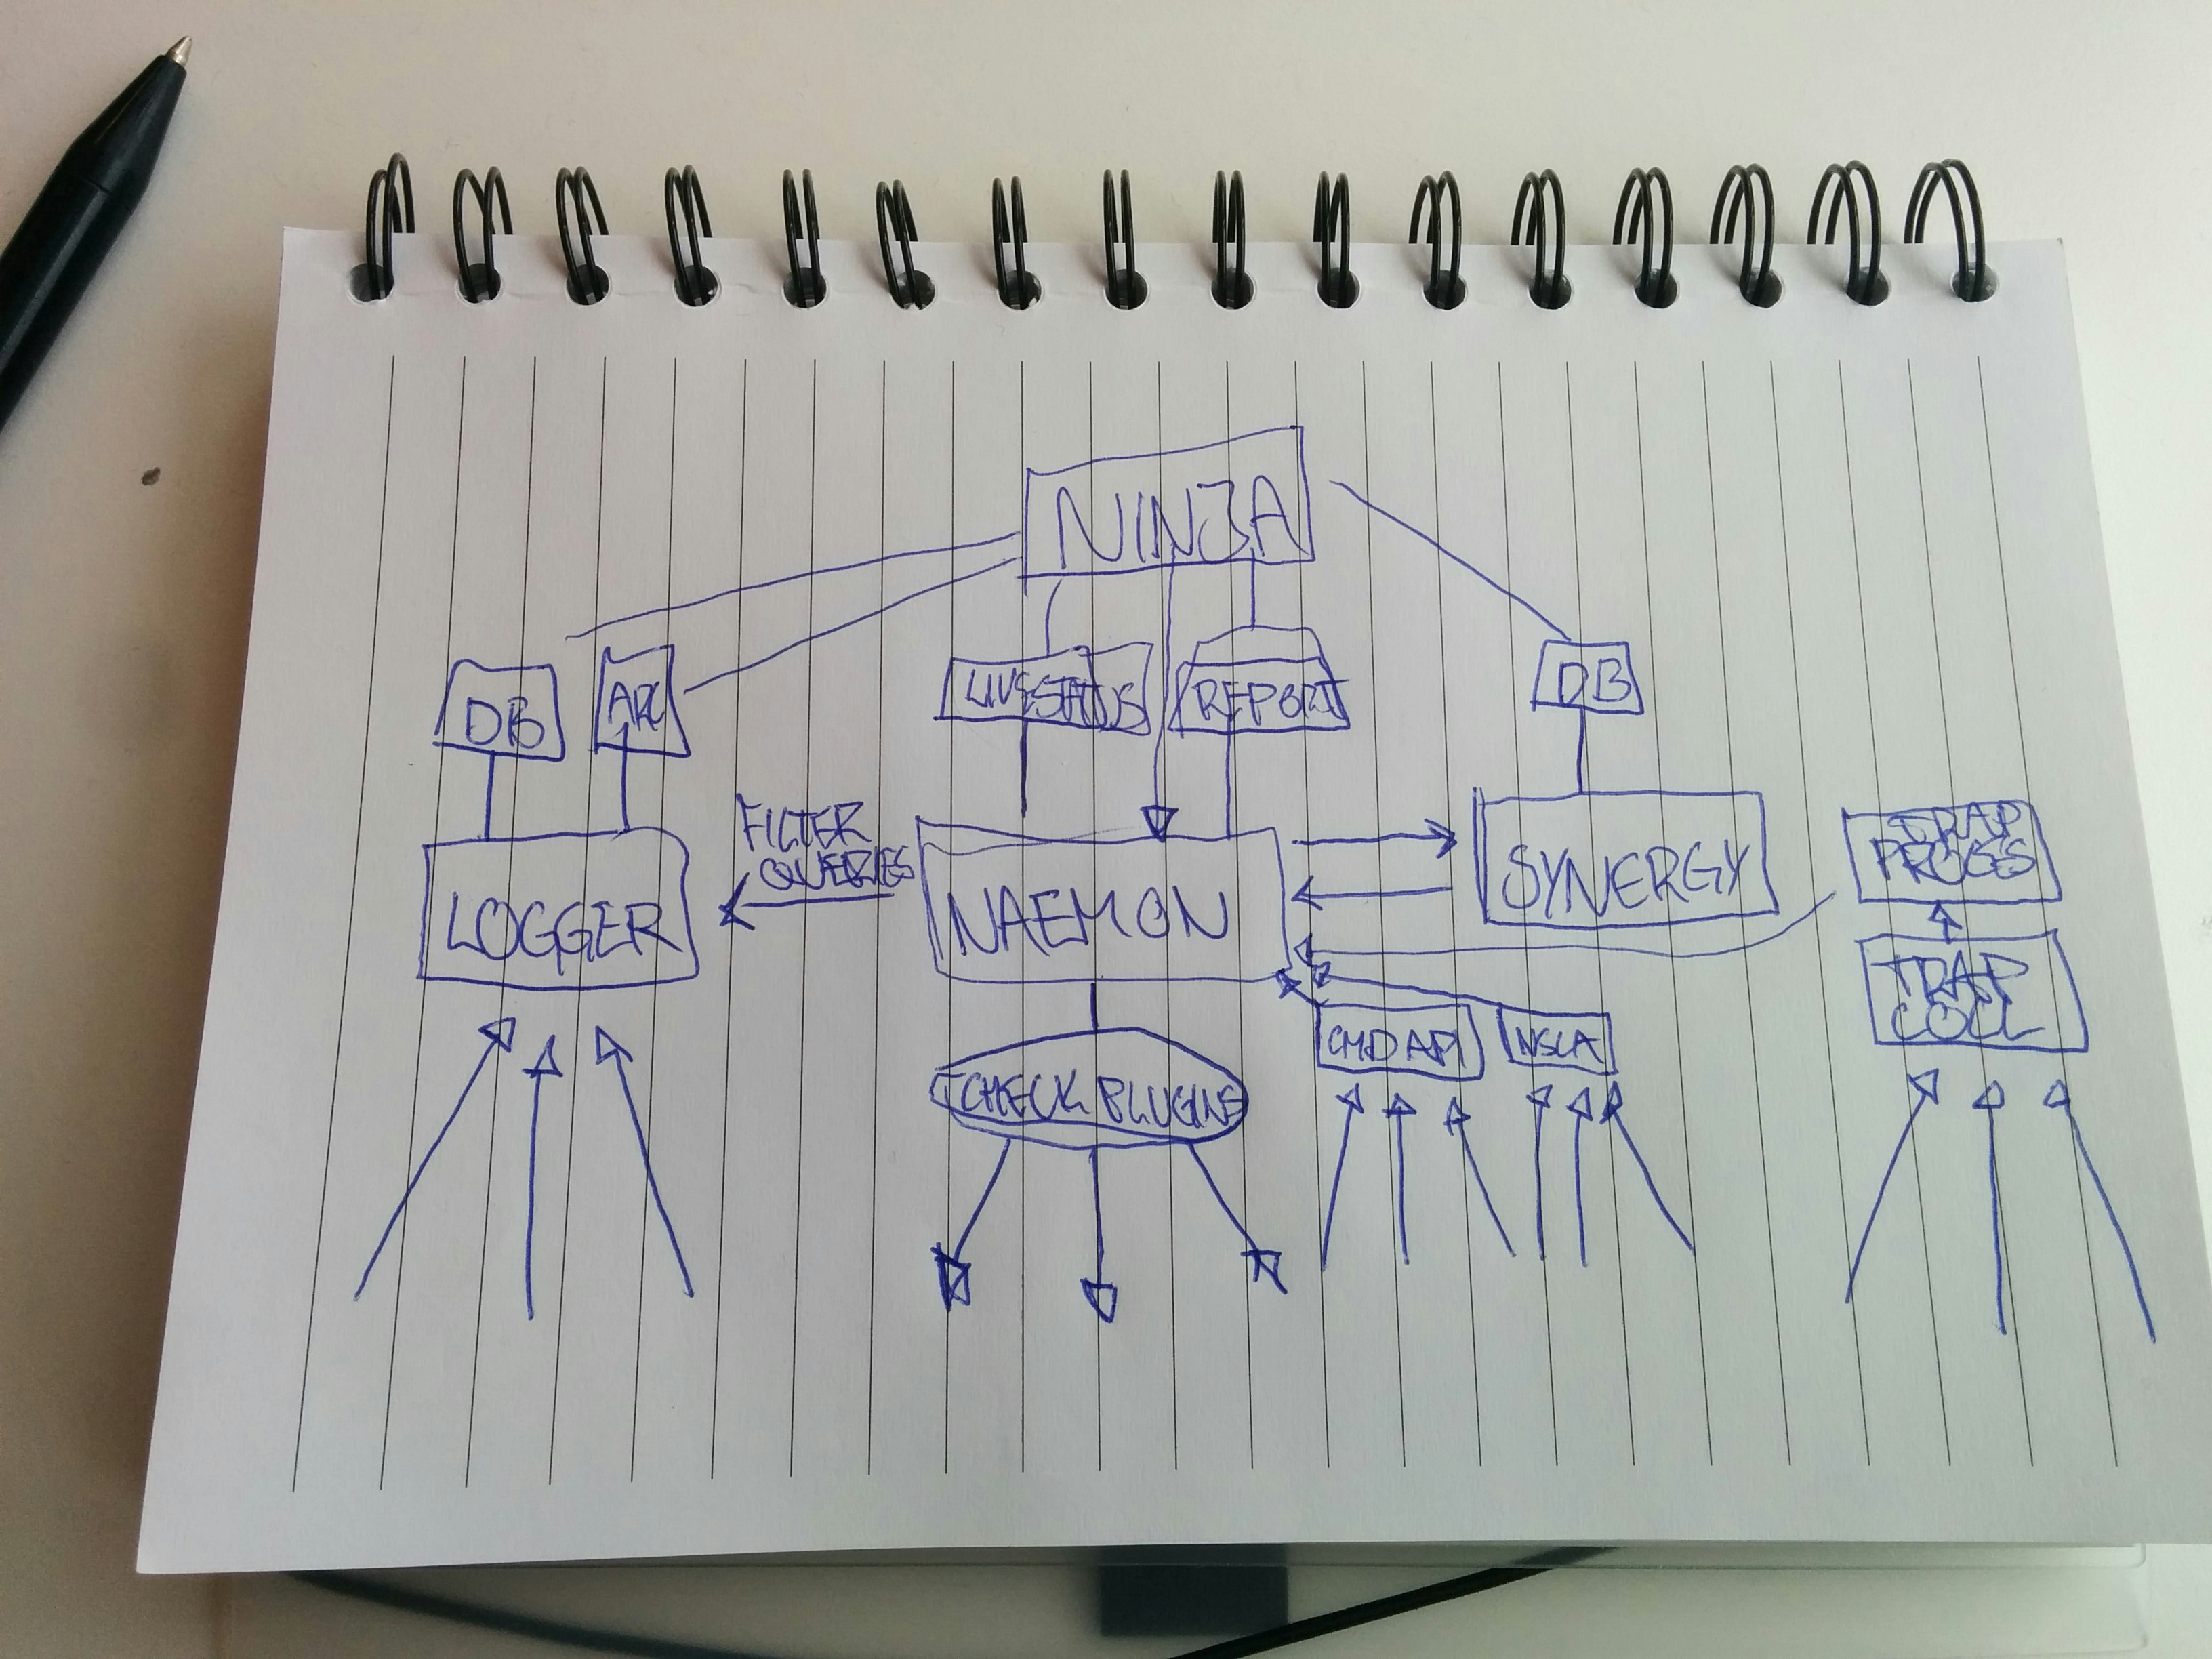 NINJA
DB
LIVESTATUS
REPORT
DB
FILTER
QUERIES
LOGGER
NAEMON
SYNERGY
TRAP
PROCS
TRAP
COLL
CMD API
NSCA
CHECK PLUGINS